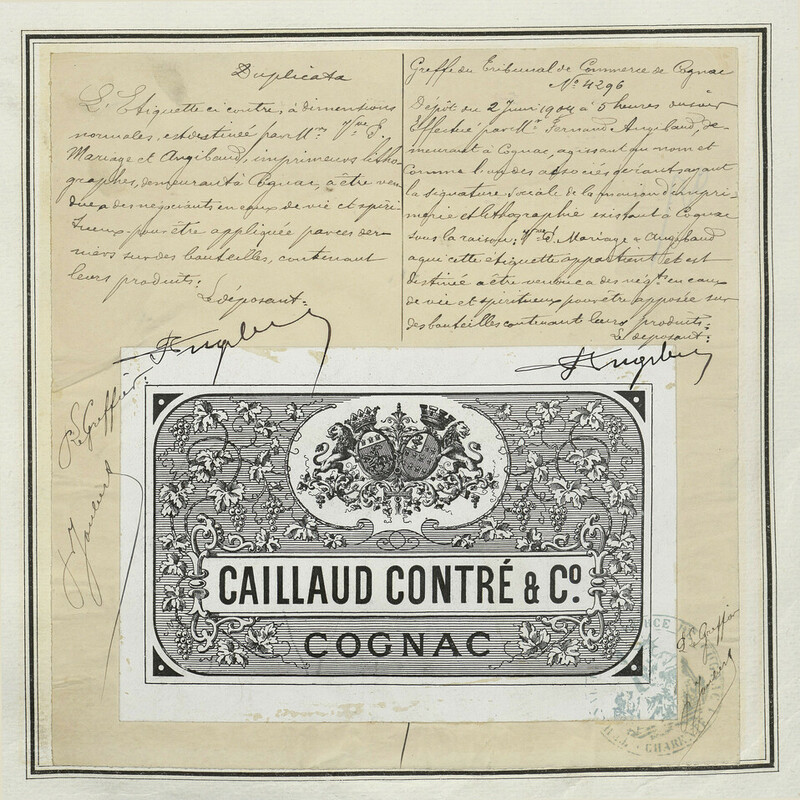 Duplicata
L'Etiquette ci contre, à dimensions
normales, est destinée par M.rs Vve L.
Mariage et Angibaud, imprimeurs litho-
graphes, demeurant à Cognac, a être ven-
due a des négociants en eaux de vie et spiri-
tueux pour être appliquée par ces der-
niers sur des bouteilles, contenant
leurs produits.
Le déposant:
Le Greffier:
Greffe du Tribunal de Commerce de Cognac
No 4296
Dépôt du 2 Juin 1904 à 5 heures du soir
Effectué par Mr. Fernand Angibaud, de-
meurant à Cognac, agissant au nom et
comme l'un des associés gérants ayant
la signature sociale de la maison d'impri-
merie et lithographie existant à Cognac
sous la raison: Vve L. Mariage & Angibaud
a qui cette étiquette appartient et est
destinée a être vendue a des négts en eaux
de vie et spiritueux pour être apposée sur
des bouteilles contenant leurs produits.
Le déposant:
CAILLAUD CONTRÉ & Co.
COGNAC
Le Greffier